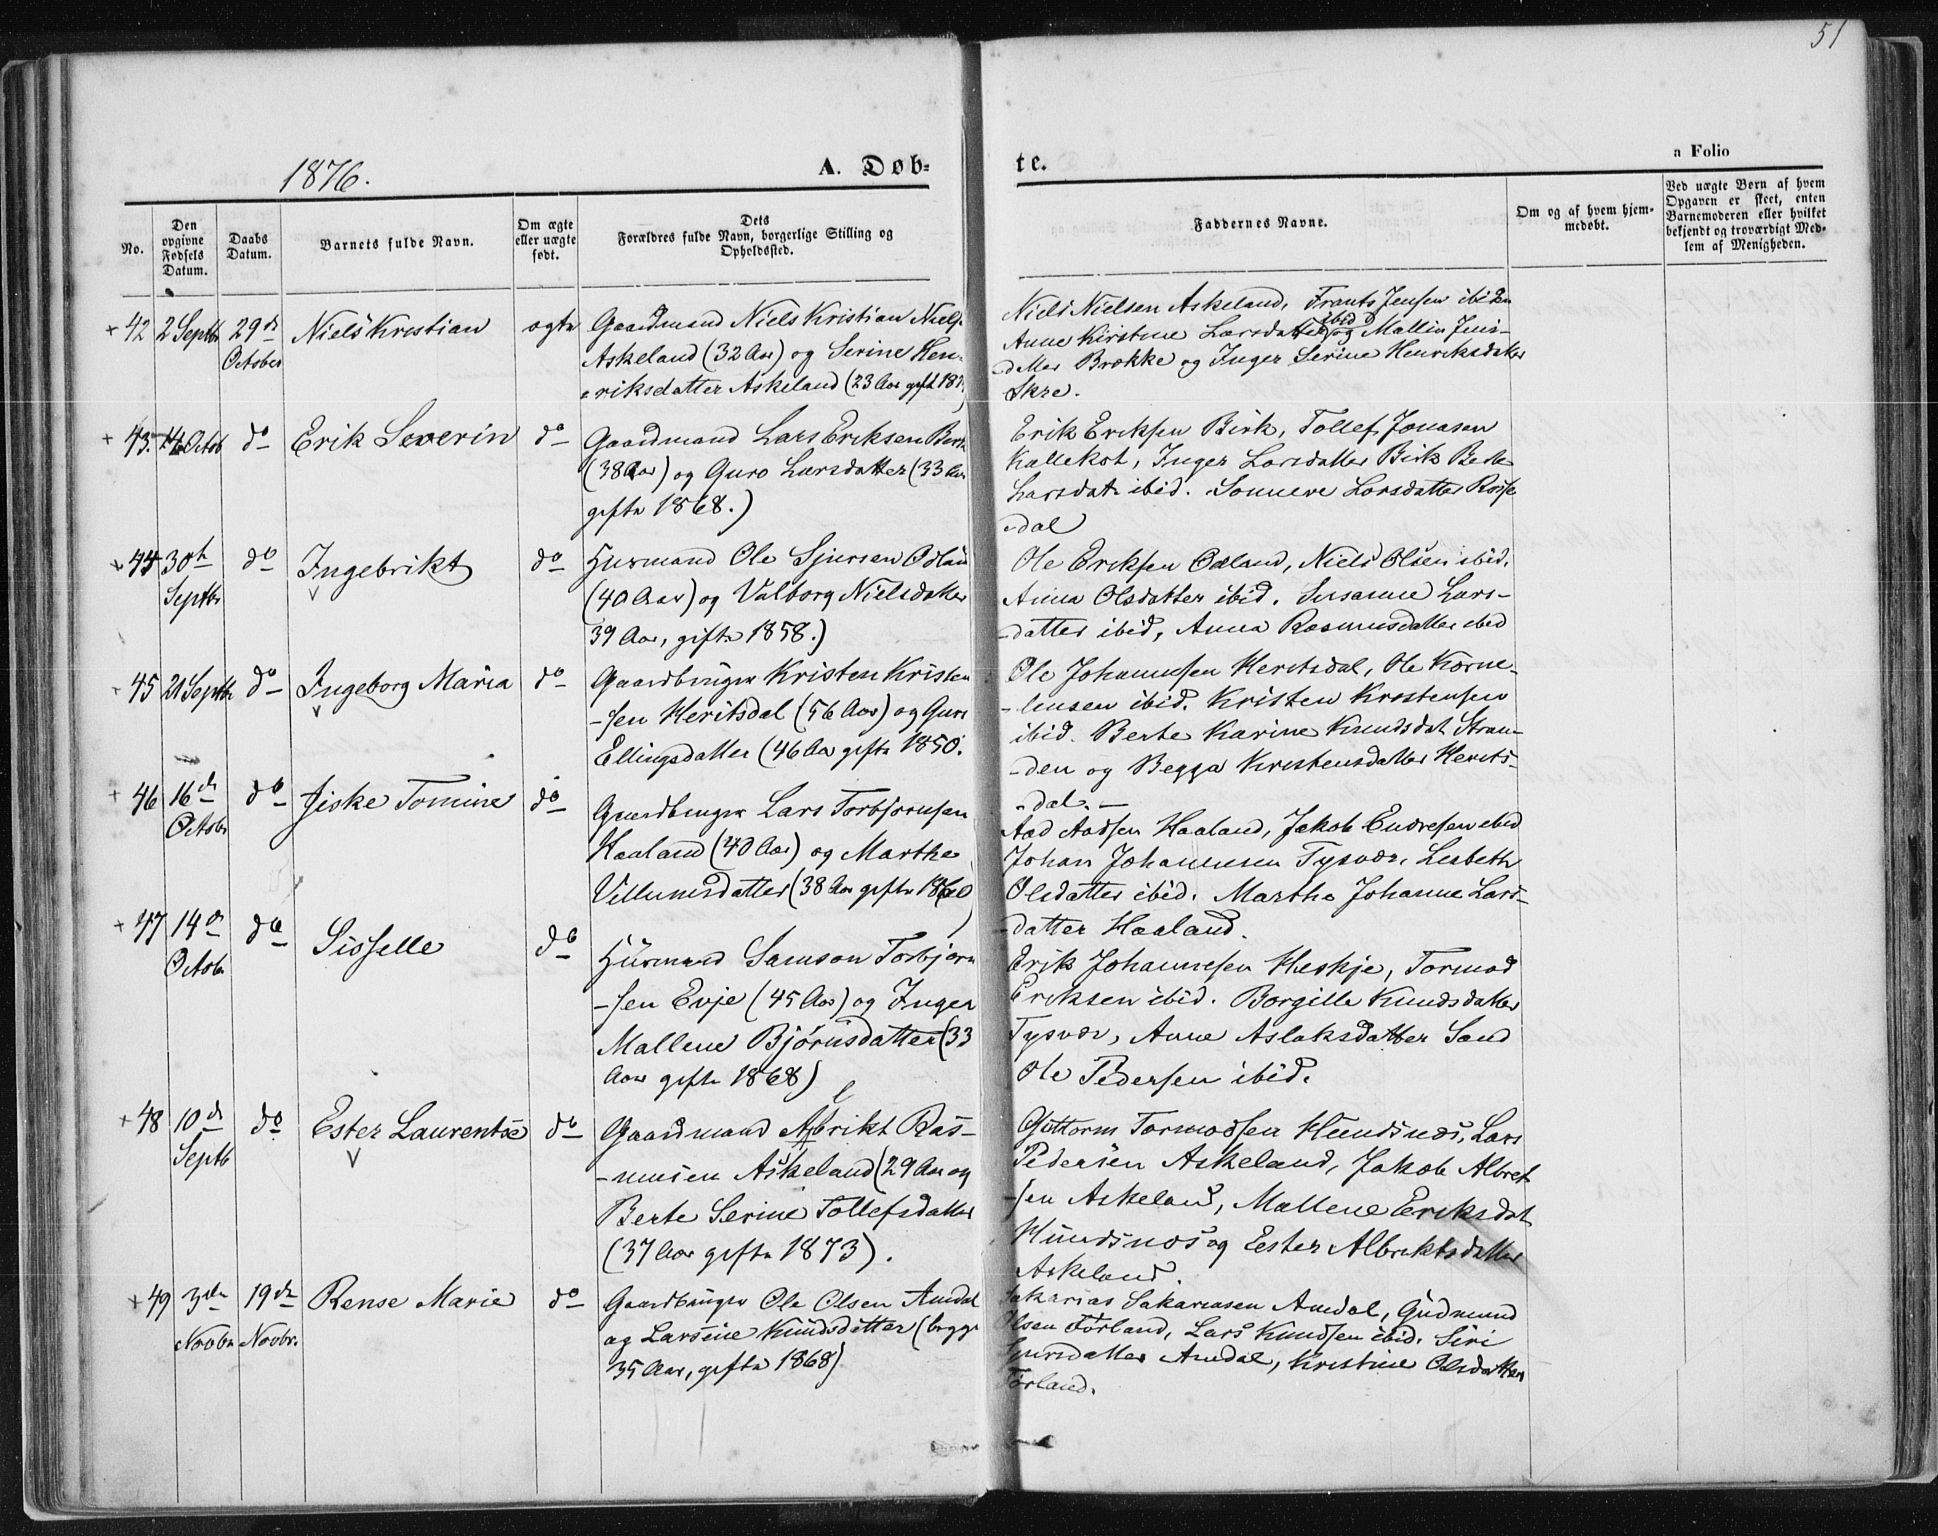 51
1876.
A. Døb-
te.
a Folio
No.
Den
opgivne
Fødsels
Datum.
Daabs
Datum.
Barnets fulde Navn.
Om ægte
eller uægte
født.
Dets
Forældres fulde Navn, borgerlige Stilling og
Opholdssted.
Faddernes Navne.
Om og af hvem hjem-
medøbt.
Ved uægte Børn af hvem
Opgaven er skeet, enten
Barnemoderen eller hvilket
bekjendt og troværdigt Med-
lem af Menigheden.
+ 42 2 Septbr 29de
October
Niels Kristian
ægte
Gaardmand Niels Kristian Niels
Askeland (32 Aar) og Serine Hen-
riksdatter Askeland (23 Aar gift 187
Niels Nielsen Askeland, Frants Jensen ibiden
Anne Kirstine Larsdatter ibid og Mallin Jens-
datter Brække og Inger Serine Henriksdatter
Skre.
+ 43. 14 Octob do
Erik Severin
do
Gaardmand Lars Eriksen Birk
(38 Aar) og Guro Larsdatter (33 Aar
gifte 1868.)
Erik Eriksen Birk, Tollef Jonasen
Kallekot, Inger Larsdatter Birk Berte
Larsdat. ibid. Sonneve Larsdatter
dal
+ 44 30te
Septbr
do
Ingebrikt
do
Husmand Ole Sjursen Odlan
(40 Aar) og Valborg Nielsdatter
39 Aar, gifte 1858.)
Ole Eriksen Odland, Niels Olsen ibid.
Anna Olsdatter ibid. Susanne Lars-
datter ibid, Anna Rasmusdatter ibid
+ 45 21 Septbr do
Ingeborg Maria
do
Gaardbruger Kristen Kristen
-sen Heritsdal (56 Aar) og Guro
Ellingsdatter (46 Aar gifte 1850.
Ole Johannesen Heritsdal, Ole Korne-
-liusen ibid. Kristen Kristensen
ibid. Berte Karine Knudsdat Stran-
-den og Begga Kristensdatter Herits-
-dal. -
+ 46 16de
Octobr
do
Jiske Tomine
do
Gaardbruger Lars Torbjornsen
Haaland (40 Aar) og Marthe
Villumsdatter (38 Aar gifte 1860)
Aad Aadsen Haaland, Jakob Endresen ibid
Johan Johannesen Tysvær, Lesbeth
Olsdatter ibid. Marthe Johanne Lars-
-datter Haaland.
+ 47 14de
Octobr
do
Sisselle
do
Husmand Samson Torbjorn
-sen Evje (45 Aar) og Inger
Mallene Bjørnsdatter (33
Aar gifte 1868)
Erik Johannesen Heskje, Tormod
Eriksen ibid. Borgille Knudsdatter
Tysvær, Anne Aslaksdatter Sand
Ole Pedersen ibid.
+ 48 10de
Septb
do
Ester Laurentse
do
Gaardmand Albrikt Ras-
-musen Askeland (29 Aar og
Berte Serine Tollefsdatter
(37 Aar gifte 1873).
Guttorm Tormodsen Hundsnæs, Lars
Pedersen Askeland, Jakob Albret
-sen Askeland, Mallene Eriksdat
Hundsnæs og Ester Albriktsdatter
Askeland.
+ 49 3die
Novbr
19de
Novbr.
Rense Marie
do
Gaardbruger Ole Olsen Amdal
og Larsine Knudsdatter (begge
35 Aar, gifte 1868)
Sakarias Sakariasen Amdal, Gudmund
Olsen Førland, Lars Knudsen ibid. Siri
Sjursdatter Amdal, Kristine Olsdatter
Førland.